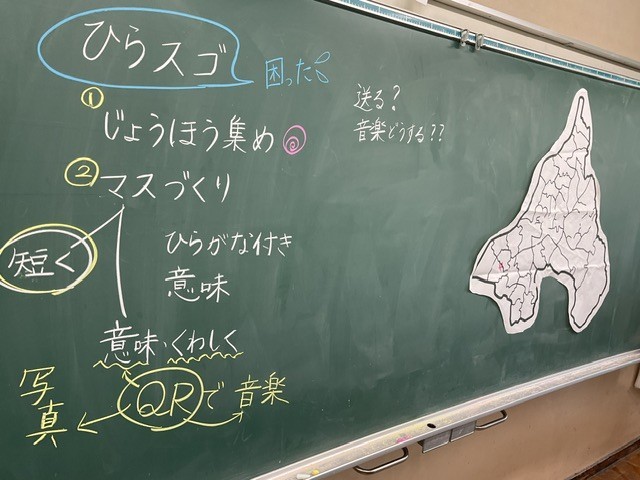 ひらスゴ
困った
① じょうほう集め
② マスづくり
短く
ひらがな付き
意味
意味・くわしく
QRで音楽
写真
送る?
音楽どうする??